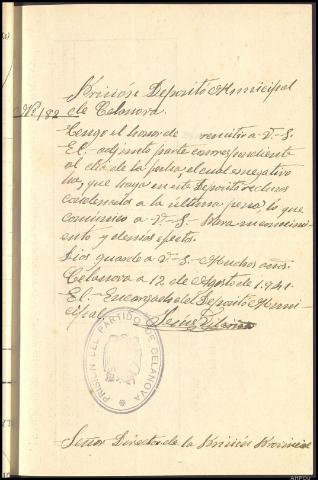 Prisión Deposito Municipal
Nº 182 de Celanova.
Tengo el honor de remitir a V.-S.-
El.- adjunto parte correspondiente
al dia de la fecha el cual es negativo
ha, que haya en este Deposito reclusos
condenados a la última pena, lo que
comunico a V.-S.- Para
y demás efectos.
Dios guarde a V.-S.- Muchos años.
Celanova a 12 de Agosto de 1.941.
El.- Encargado del Deposito Muni-
cipal
Jesús
PRISION DEL PARTIDO DE CELANOVA
Señor Director de la Prisión Provincial
AHPOU